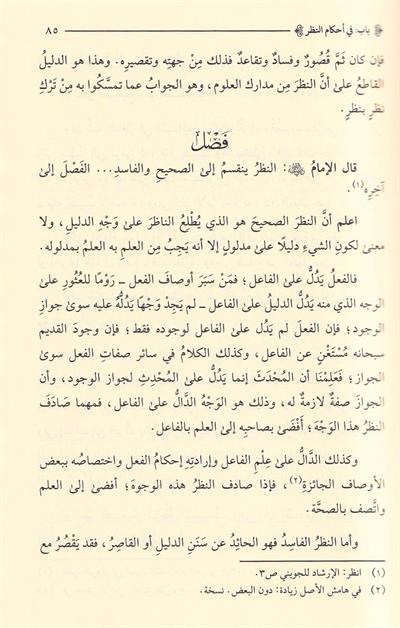 باب: في أحكام النظر
٨٥
فإن كان ثَمَّ قُصُورٌ وفسادٌ وتقاعدٌ فذلك مِنْ جهتِه وتقصيرِه. وهذا هو الدليلُ
القاطعُ علىٰ أنَّ النظرَ مِن مدارك العلوم، وهو الجوابُ عما تمسكُوا به مِنْ تَرْكِ
نظرٍ بنظرٍ.
فَصْل
قال الإمامُ: النظرُ ينقسمُ إلىٰ الصحيحِ والفاسدِ... الفَصْلَ إلىٰ
آخِرِه(١).
اعلم أنَّ النظرَ الصحيحَ هو الذي يُطْلِعُ الناظرَ علىٰ وَجْهِ الدليلِ، ولا
معنىٰ لكونِ الشيءِ دليلًا علىٰ مدلولٍ إلا أنه يَجِبُ مِن العلمِ به العلمُ بمدلوله.
فالفعلُ يَدُلُّ علىٰ الفاعل؛ فمَنْ سَبَرَ أوصافَ الفعل ـ رَوْمًا للعُثُورِ علىٰ
الوجه الذي منه يَدُلُّ الدليلُ علىٰ الفاعل ـ لم يَجِدْ وَجْهًا يَدُلُّهُ عليه سوىٰ جوازِ
الوجود؛ فإن الفعلَ لم يَدُل علىٰ الفاعل لوجوده فقط؛ فإن وجودَ القديم
سبحانه مُسْتَغْنٍ عن الفاعل، وكذلك الكلامُ في سائر صفاتِ الفعل سوىٰ
الجواز؛ فَعَلِمْنَا أن المُحْدَثَ إنما يَدُلُّ علىٰ المُحْدِثِ لجواز الوجود، وأن
الجوازَ صفةٌ لازمةٌ له، وذلك هو الوَجْهُ الدَّالُّ علىٰ الفاعل، فمهما صَادَفَ
النظرُ هذا الوَجْهَ؛ أَفْضَىٰ بصاحبِه إلىٰ العلم بالفاعل.
وكذلك الدَّالُّ علىٰ عِلْمِ الفاعلِ وإرادتِه إحكامُ الفعل واختصاصُه ببعض
الأوصاف الجائزةِ(٢)، فإذا صادف النظرُ هذه الوجوهَ؛ أفضىٰ إلىٰ العلم
واتَّصف بالصحَّة.
وأما النظرُ الفاسِدُ فهو الحائِدُ عن سَنَنِ الدليل أو القاصِرُ، فقد يَقْصُرُ مع
(١) انظر: الإرشاد للجويني ص٣.
(٢) في هامش الأصل زيادة: دون البعض. نسخة.